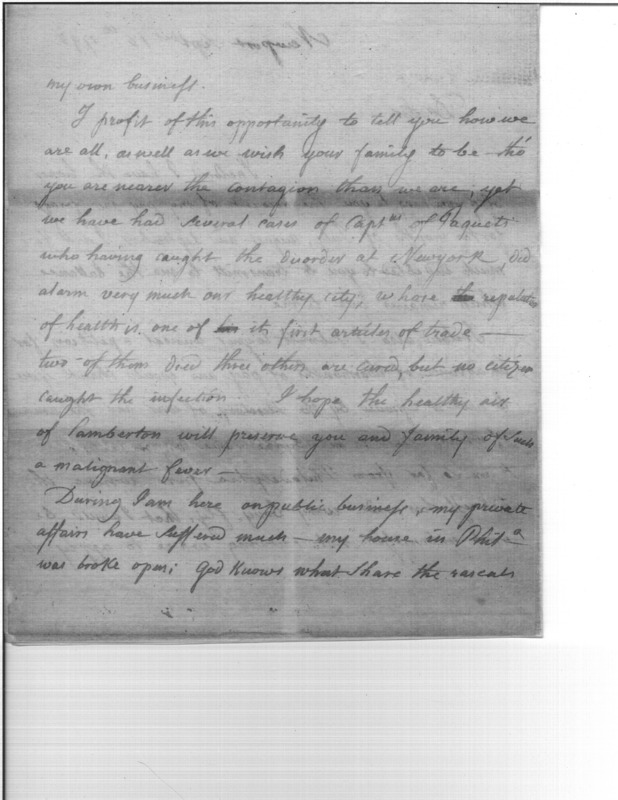 my own business.
I profit of this opportunity to tell you how we
are all, as well as we wish your family to be tho'
you are nearer the contagion than we are, yet
we have had several cases of Capt.ns of Paquets
who having caught the disorder at Newyork, did
alarm very much our healthy city, whose the reputation
of health is one of its first articles of trade —
two of them died three others are cured, but no citizen
caught the infection. I hope the healthy air
of Lamberton will preserve you and family of such
a malignant fever —
During I am here on public business, my private
affairs have suffered much — my house in Phil.a
was broke open; God Knows what share the rascals